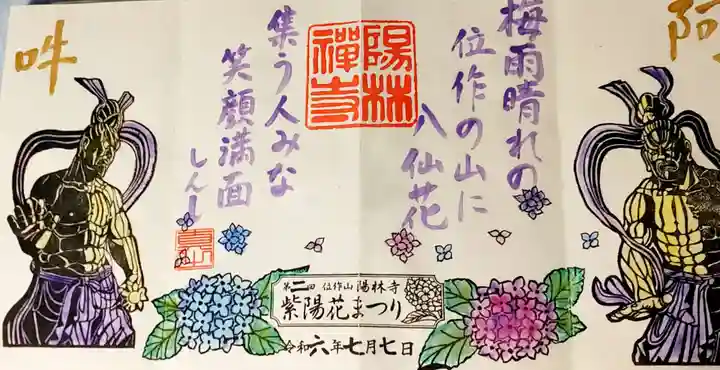 阿
梅雨晴れの
位作の山に
八仙花
陽林
禅寺
集う人みな
笑顔満面
しんじ
吽
第二回 位作山 陽林寺
紫陽花まつり
令和六年七月七日